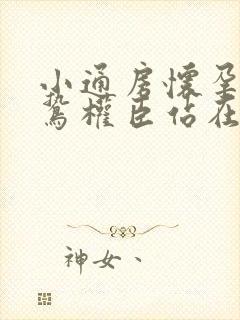 小通房懷孕
鷙權臣佔在
神女、